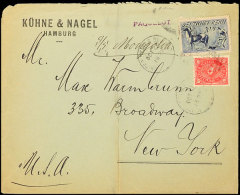 KÜHNE & NAGEL
HAMBURG
PAQUEBOT
S/S. "Mongolia"
Mr. Max Warmbrunn
335, Broadway
New York
U.S.A.